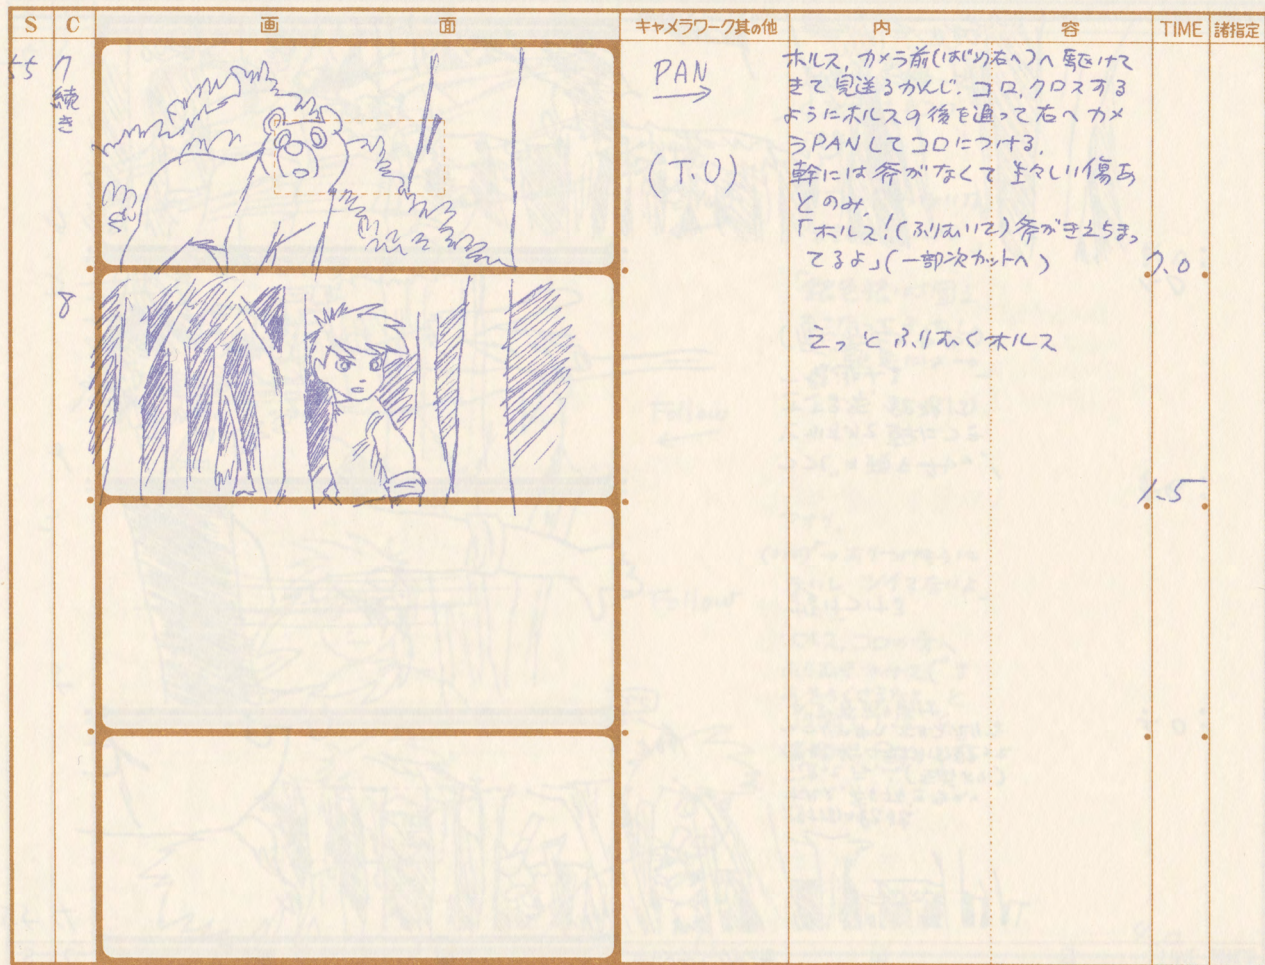 S C 画 面 キャメラワーク其の他 内 容 TIME 諸指定
55 7 続き
PAN
(T.U)
ホルス、カメラ前(はじめ右へ)へ駆けて
きて見送るかんじ。コロ、クロスする
ようにホルスの後を追って右へカメ
ラPANしてコロにつける。
幹には斧がなくて生々しい傷あ
とのみ。
「ホルス!(ふりむいて)斧がきえちまっ
てるよ」(一部次カットへ)
7.0
8
えっとふりむくホルス
1.5